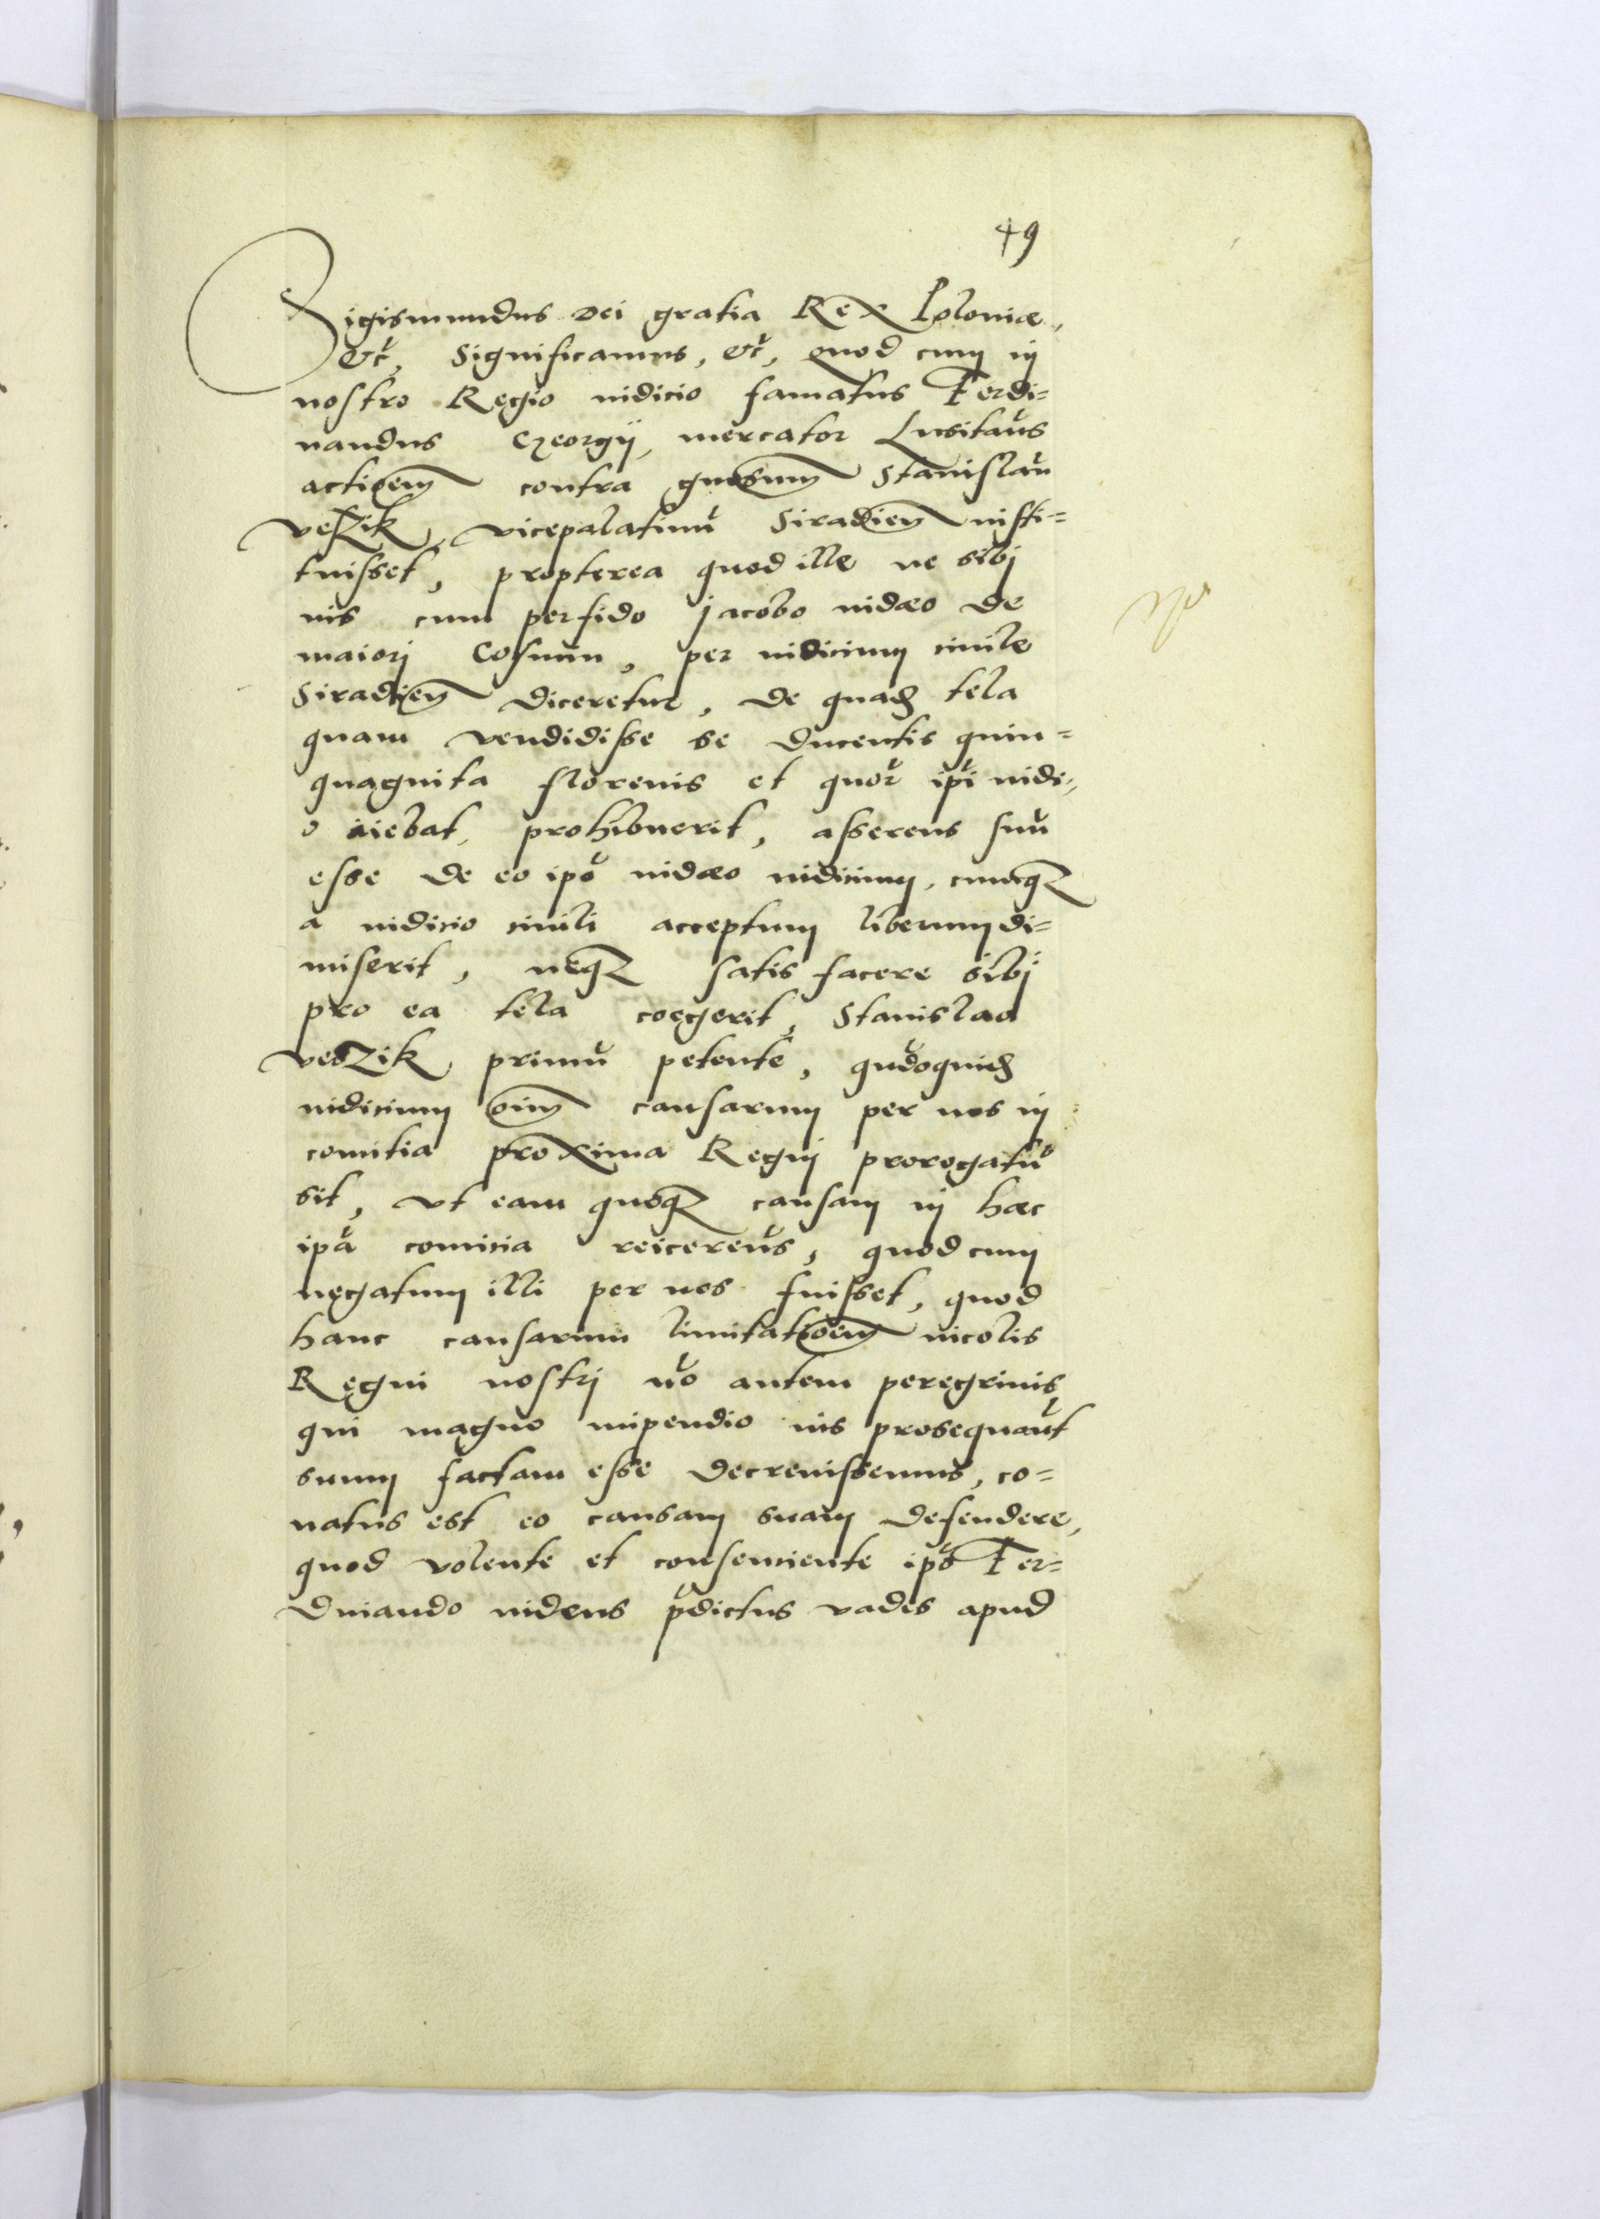 49
Sigismundus Dei gratia Rex Poloniæ,
&c̃, Significamus, &c̃, quod cum in
nostro Regio iudicio famatus Ferdi=
nandus Georgij, mercator Lusitan̄s
actiōem contra gn̄osum Stanislaū
vezik, vicepalatinū Siradien̄ insti=
tuisset, propterea quod ille ne sibj
ius cum perfido Jacobo iudæo de
maiorj Cosmin, per iudicium ciuile
Siradien̄ diceretur, de quad̄ tela
quam vendidisse se ducentis quin=
quaginta florenis et quor̄ ip̄i iudi,
o aiebat, prohibuerit, asserens suū
esse de eo ip̄o iudæo iudicium, cumq̄
a iudicio ciuili acceptum liberum di=
miserit, neq̄ satis facere sibj
pro ea tela coegerit, Stanislao
vezik primū petente, qūdoquid̄
iudicium oīm causarum per nos in
comitia proxima Regnj prorogatū
sit, vt eam quoq̄ causam in hæc
ip̄a comicia reicerem̄s, quod cum
negatum illi per nos fuisset, quod
hanc causarum limitatiōem incolis
Regni nostrj nō autem peregrinis,
qui magno impendio ius prosequan̄t
suum factam esse decreuissemus, co=
natus est eo causam suam defendere,
quod volente et consenciente ip̄o Fer=
dinando iudeus p̄dictus vades apud